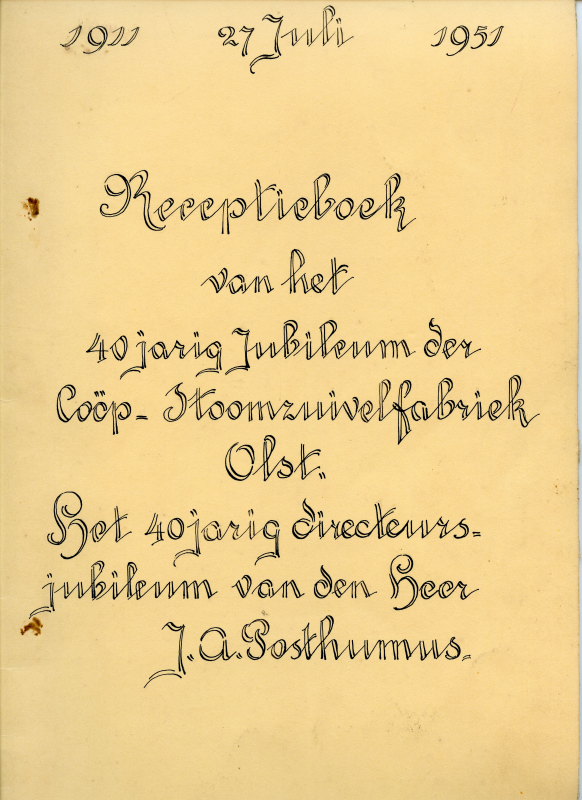 1911 27 Juli 1951
Receptieboek
van het
40 jarig Jubileum der
Coöp- Stoomzuivelfabriek
Olst.
Het 40 jarig directeurs-
jubileum van den Heer
J. A. Posthumus.